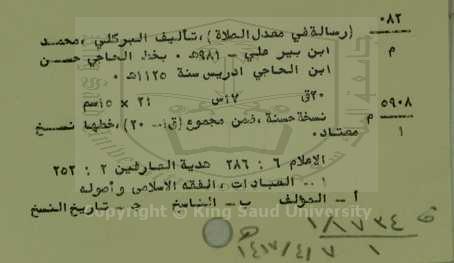 ٠٨٢
(رسالة في معدل الصلاة)، تأليف البركلي، محمد
م
ابن بير علي - ٩٨١هـ. بخط الحاجي حسن
ابن الحاجي ادريس سنة ١١٢٥هـ.
٢٠ق ١٧س ٢١ × ١٥سم
٥٩٠٨
م
نسخة حسنة، ضمن مجموع (ق ١ - ٢٠)، خطها نسخ
١
معتاد.
الاعلام ٦ : ٢٨٦ هدية العارفين ٢ : ٢٥٢
١ - العبادات، الفقه الاسلامي وأصوله
أ - المؤلف ب - الناسخ ج - تاريخ النسخ
Copyright © King Saud University
ف ١/١٧٣٤
١
١٤١٧/٤/٧هـ